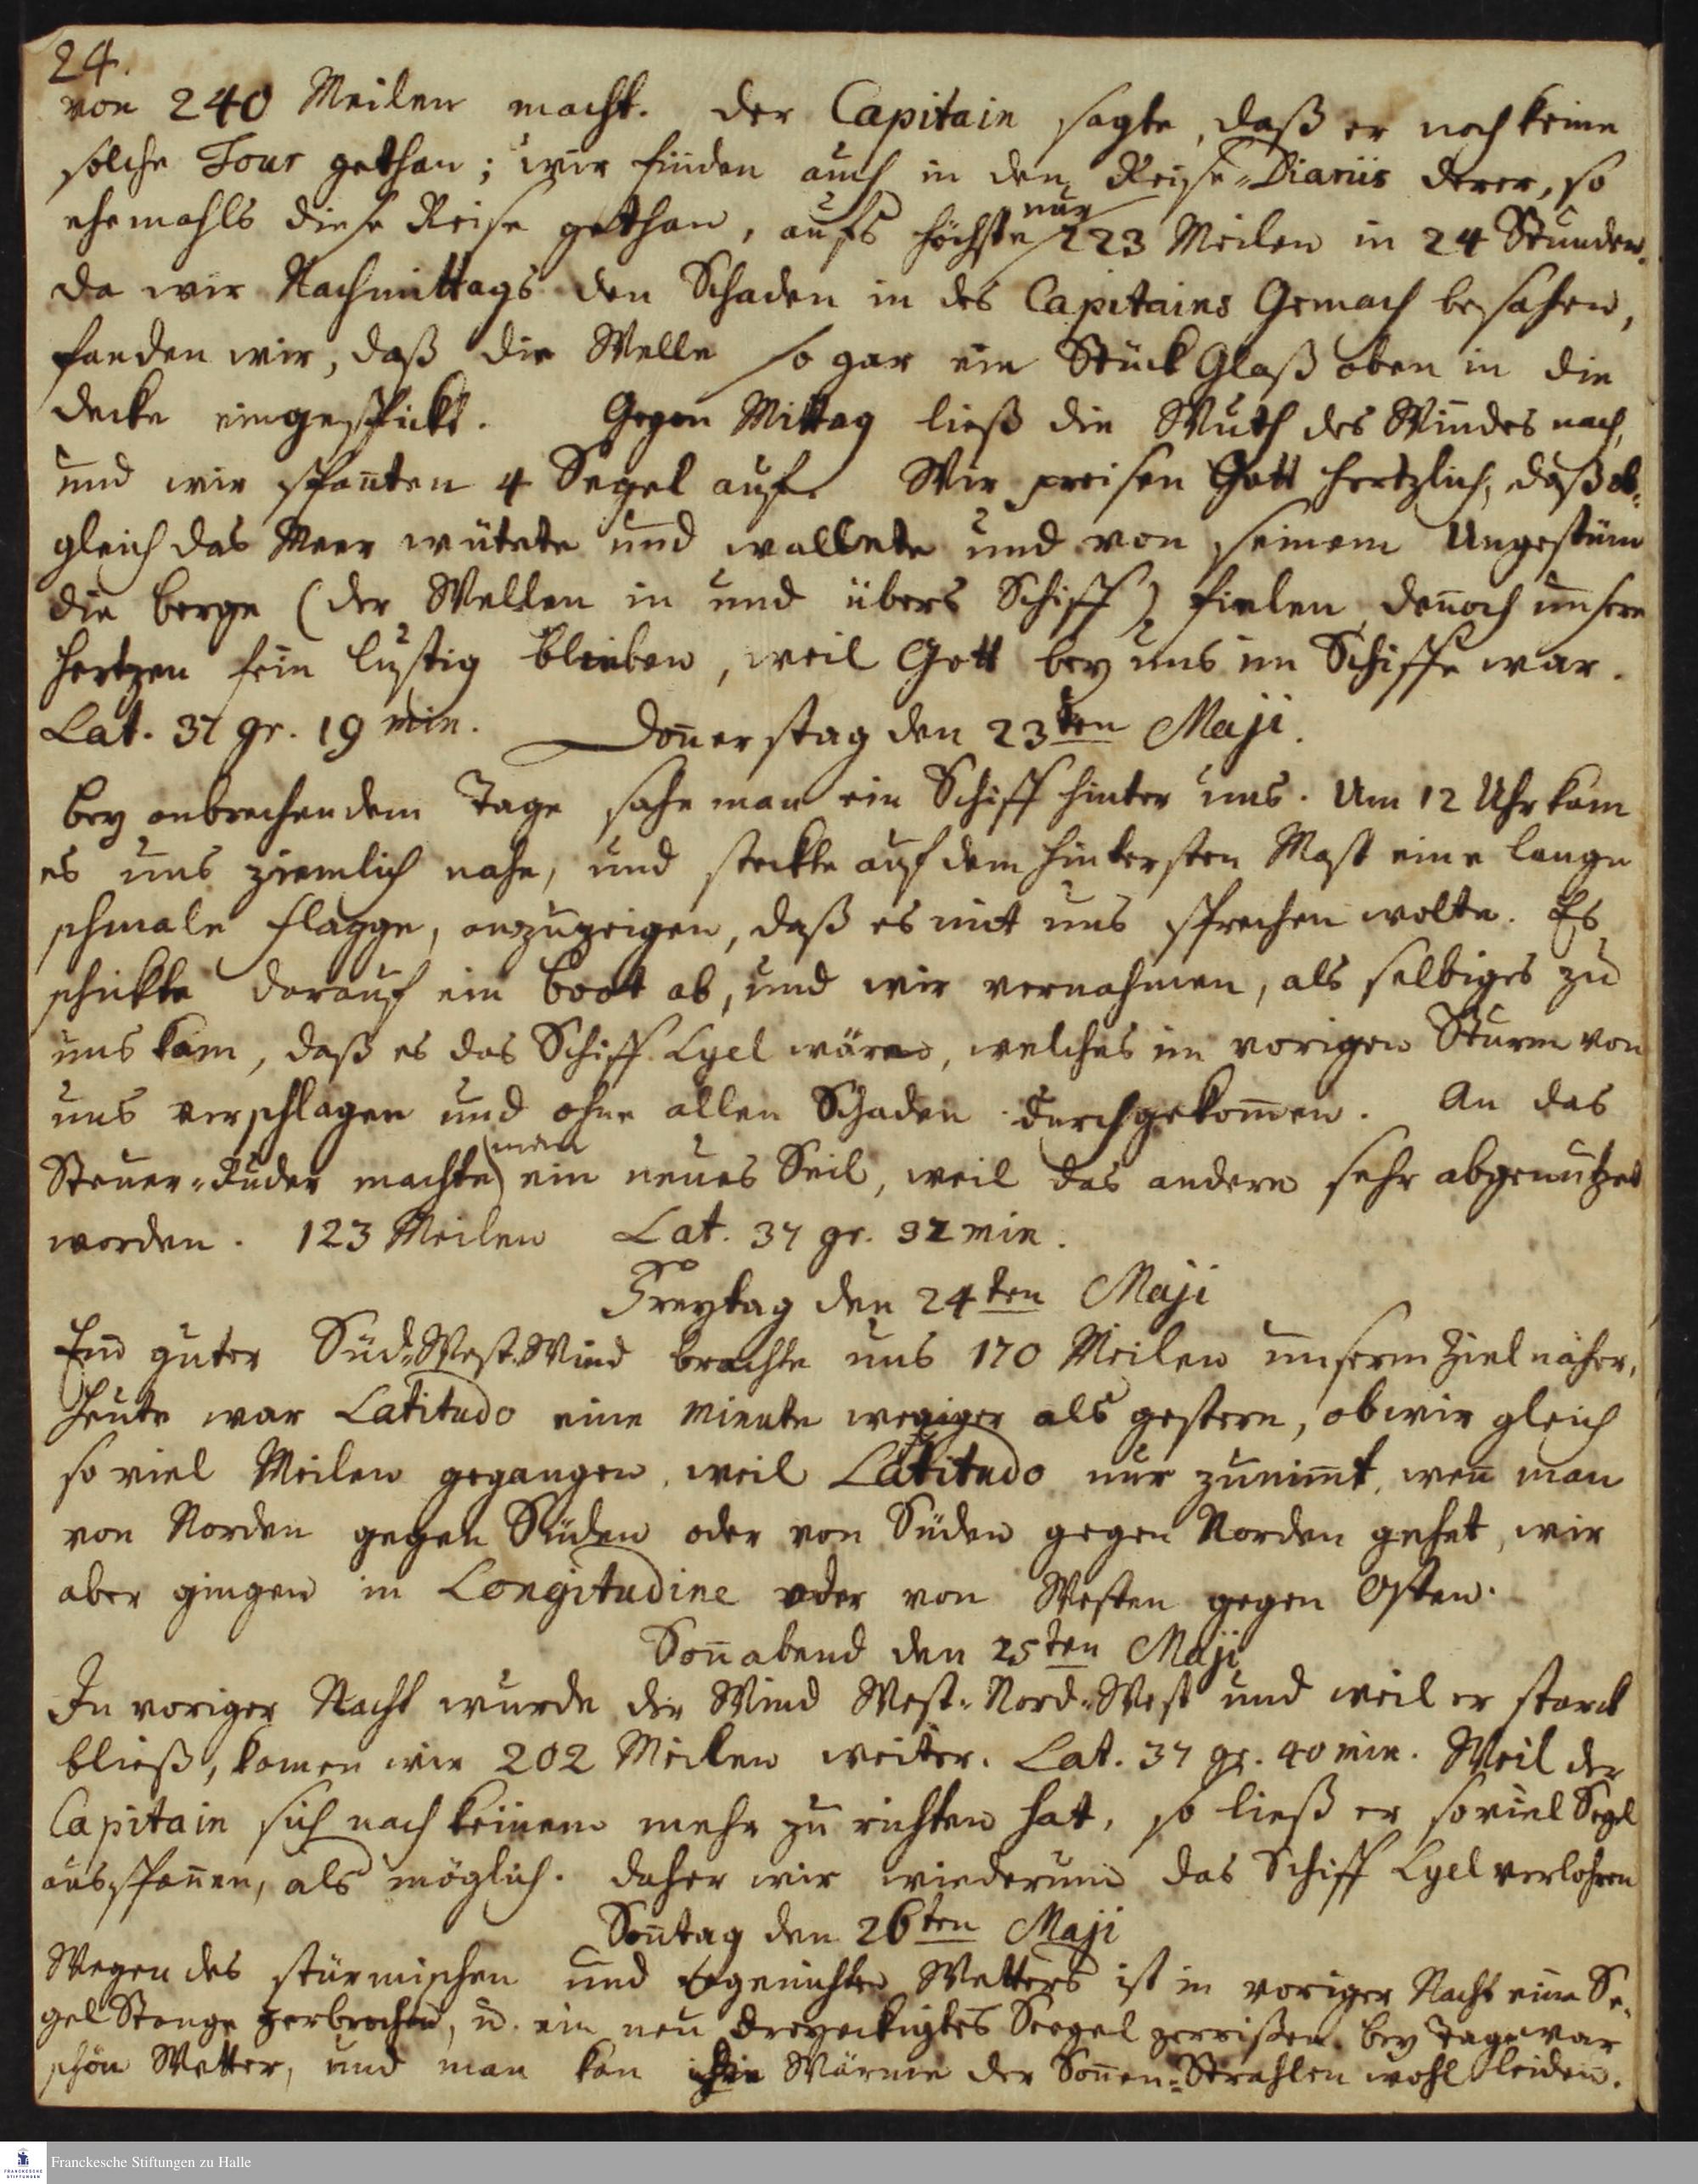 24.
von 240 Meilen macht. Der Capitain sagte, daß er noch keine
solche Tour gethan; wir finden auch in den Reise-Diariis derer, so
ehemahls diese Reise gethan, aufs höchste nur 223 Meilen in 24 Stunden.
Da wir Nachmittags den Schaden in des Capitains Gemach besahen,
fanden wir, daß die Welle so gar ein Stück Glaß oben in die
Decke eingespickt. Gegen Mittag ließ die Wuth des Windes nach,
und wir spañten 4 Segel auf. Wir preisen Gott hertzlich, daß ob-
gleich das Meer wütete und wallete und von seinem Ungestüm
die Berge (der Wellen in und übers Schiff) fielen, deñoch unsere
Hertzen fein lustig blieben, weil Gott bey uns im Schiffe war.
Lat. 37 gr. 19 min. Doñerstag den 23ten Maji.
Bey anbrechendem Tage sahe man ein Schiff hinter uns. Um 12 Uhr kam
es uns ziemlich nahe, und steckte auf dem hintersten Mast eine lange
schmale Flagge, anzuzeigen, daß es mit uns sprechen wolte. Es
schickte darauf ein Boot ab, und wir vernahmen, als selbiges zu
uns kam, daß es das Schiff Lyel wäre, welches im vorigen Sturm von
uns verschlagen und ohne allen Schaden durchgekom̃en. An das
Steuer-Ruder machte man ein neues Seil, weil das andere sehr abgenutzet
worden. 123 Meilen Lat. 37 gr. 32 min.
Freytag den 24ten Maji
Ein guter Süd-West-Wind brachte uns 170 Meilen unserm Ziel näher.
Heute war Latitudo eine Minute weniger als gestern, ob wir gleich
so viel Meilen gegangen, weil Latitudo nur zunim̃t, weñ man
von Norden gegen Süden oder von Süden gegen Norden gehet, wir
aber gingen in Longitudine oder von Westen gegen Osten.
Soñabend den 25ten Maji
In voriger Nacht wurde der Wind West-Nord-West und weil er starck
bließ, kamen wir 202 Meilen weiter. Lat. 37 gr. 40 min. Weil der
Capitain sich nach keinem mehr zu richten hat, so ließ er soviel Segel
ausspañen, als möglich. Daher wir wiederum das Schiff Lyel verlohren
Soñtag den 26ten Maji
Wegen des stürmischen und Wetters ist in voriger Nacht eine Se-
gel Stange zerbrochen, u. ein neu dreyeckigtes Seegel zerrißen. Bey Tage war
schön Wetter, und man kan die Wärme der Soñen-Strahlen wohl leiden.
Franckesche Stiftungen zu Halle